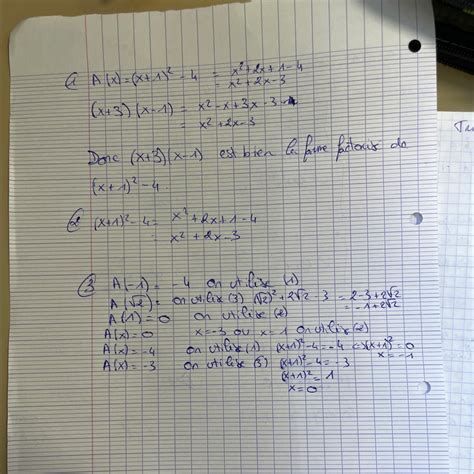 ① A(x) = (x+1)² - 4 = x² + 2x + 1 - 4
= x² + 2x - 3
(x+3)(x-1) = x² - x + 3x - 3
= x² + 2x - 3
Donc (x+3)(x-1) est bien la forme factorisée de
(x+1)² - 4.
② (x+1)² - 4 = x² + 2x + 1 - 4
= x² + 2x - 3
③ A(-1) = -4 on utilise (1)
A(√2) = on utilise (3) (√2)² + 2√2 - 3 = 2 - 3 + 2√2
= -1 + 2√2
A(1) = 0 on utilise (2)
A(x) = 0 x = -3 ou x = 1 on utilise (2)
A(x) = -4 on utilise (1) (x+1)² - 4 = -4 <=> (x+1)² = 0
x = -1
A(x) = -3 on utilise (3) (x+1)² - 4 = -3
(x+1)² = 1
x = 0